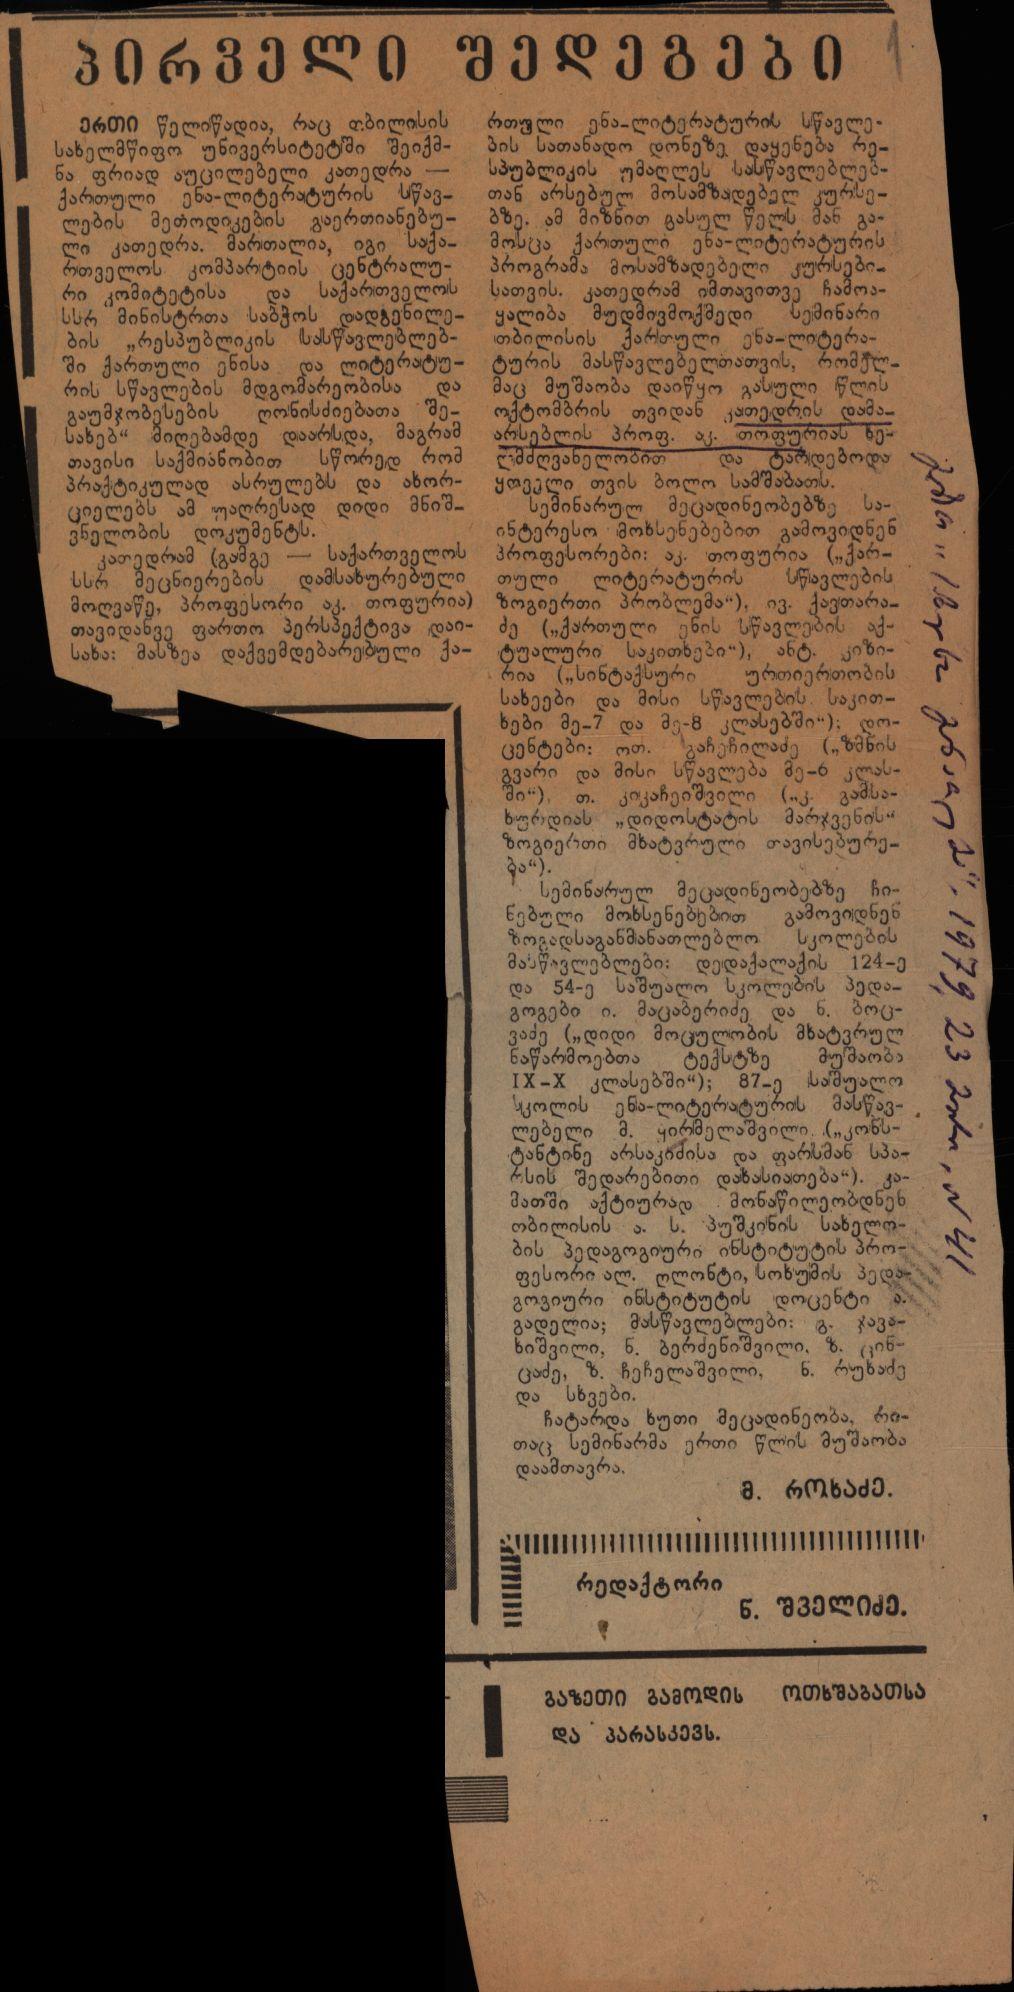 პირველი შედეგები
1
ერთი წელიწადია, რაც თბილისის
სახელმწიფო უნივერსიტეტში შეიქმ-
ნა ფრიად აუცილებელი კათედრა —
ქართული ენა-ლიტერატურის სწავ-
ლების მეთოდიკების გაერთიანებუ-
ლი კათედრა. მართალია, იგი საქა-
რთველოს კომპარტიის ცენტრალუ-
რი კომიტეტისა და საქართველოს
სსრ მინისტრთა საბჭოს დადგენილე-
ბის „რესპუბლიკის სასწავლებლებ-
ში ქართული ენისა და ლიტერატუ-
რის სწავლების მდგომარეობისა და
გაუმჯობესების ღონისძიებათა შე-
სახებ“ მიღებამდე დაარსდა, მაგრამ
თავისი საქმიანობით სწორედ რომ
პრაქტიკულად ასრულებს და ახორ-
ციელებს ამ უაღრესად დიდი მნიშ-
ვნელობის დოკუმენტს.
კათედრამ (გამგე — საქართველოს
სსრ მეცნიერების დამსახურებული
მოღვაწე, პროფესორი აკ. თოფურია)
თავიდანვე ფართო პერსპექტივა დაი-
სახა: მასზეა დაქვემდებარებული ქა-
რთული ენა-ლიტერატურის სწავლე-
ბის სათანადო დონეზე დაყენება რე-
სპუბლიკის უმაღლეს სასწავლებლებ-
თან არსებულ მოსამზადებელ კურსე-
ბზე. ამ მიზნით გასულ წელს მან გა-
მოსცა ქართული ენა-ლიტერატურის
პროგრამა მოსამზადებელი კურსები-
სათვის. კათედრამ იმთავითვე ჩამოა-
ყალიბა მუდმივმოქმედი სემინარი
თბილისის ქართული ენა-ლიტერა-
ტურის მასწავლებელთათვის, რომელ-
მაც მუშაობა დაიწყო გასული წლის
ოქტომბრის თვიდან კათედრის დამა-
არსებლის პროფ. აკ. თოფურიას ხე-
ლმძღვანელობით და ტარდებოდა
ყოველი თვის ბოლო სამშაბათს.
სემინარულ მეცადინეობებზე სა-
ინტერესო მოხსენებებით გამოვიდნენ
პროფესორები: აკ. თოფურია („ქარ-
თული ლიტერატურის სწავლების
ზოგიერთი პრობლემა“), ივ. ქავთარა-
ძე („ქართული ენის სწავლების აქ-
ტუალური საკითხები“), ანტ. კიზი-
რია („სინტაქსური ურთიერთობის
სახეები და მისი სწავლების საკით-
ხები მე-7 და მე-8 კლასებში“); დო-
ცენტები: ოთ. გაჩეჩილაძე („ზმნის
გვარი და მისი სწავლება მე-6 კლას-
ში“), თ. კიკაჩეიშვილი („კ. გამსა-
ხურდიას „დიდოსტატის მარჯვენის“
ზოგიერთი მხატვრული თავისებურე-
ბა“).
სემინარულ მეცადინეობებზე ჩი-
ნებული მოხსენებებით გამოვიდნენ
ზოგადსაგანმანათლებლო სკოლების
მასწავლებლები: დედაქალაქის 124-ე
და 54-ე საშუალო სკოლების პედა-
გოგები ი. მაცაბერიძე და ნ. ბოც-
ვაძე („დიდი მოცულობის მხატვრულ
ნაწარმოებთა ტექსტზე მუშაობა
IX-X კლასებში“); 87-ე საშუალო
სკოლის ენა-ლიტერატურის მასწავ-
ლებელი მ. ყირმელაშვილი („კონს-
ტანტინე არსაკიძისა და ფარსმან სპა-
რსის შედარებითი დახასიათება“). კა-
მათში აქტიურად მონაწილეობდნენ
თბილისის ა. ს. პუშკინის სახელო-
ბის პედაგოგიური ინსტიტუტის პრო-
ფესორი ალ. ღლონტი, სოხუმის პედა-
გოგიური ინსტიტუტის დოცენტი ა.
გადელია; მასწავლებლები: გ. ჯავა-
ხიშვილი, ნ. ბერძენიშვილი, ზ. ცინ-
ცაძე, ზ. ჩეჩელაშვილი, ნ. რუხაძე
და სხვები.
ჩატარდა ხუთი მეცადინეობა, რი-
თაც სემინარმა ერთი წლის მუშაობა
დაამთავრა.
მ. როხაძე.
რედაქტორი
ნ. შველიძე.
გაზეთი გამოდის ოთხშაბათსა
და პარასკევს.
1979, 23 N 41